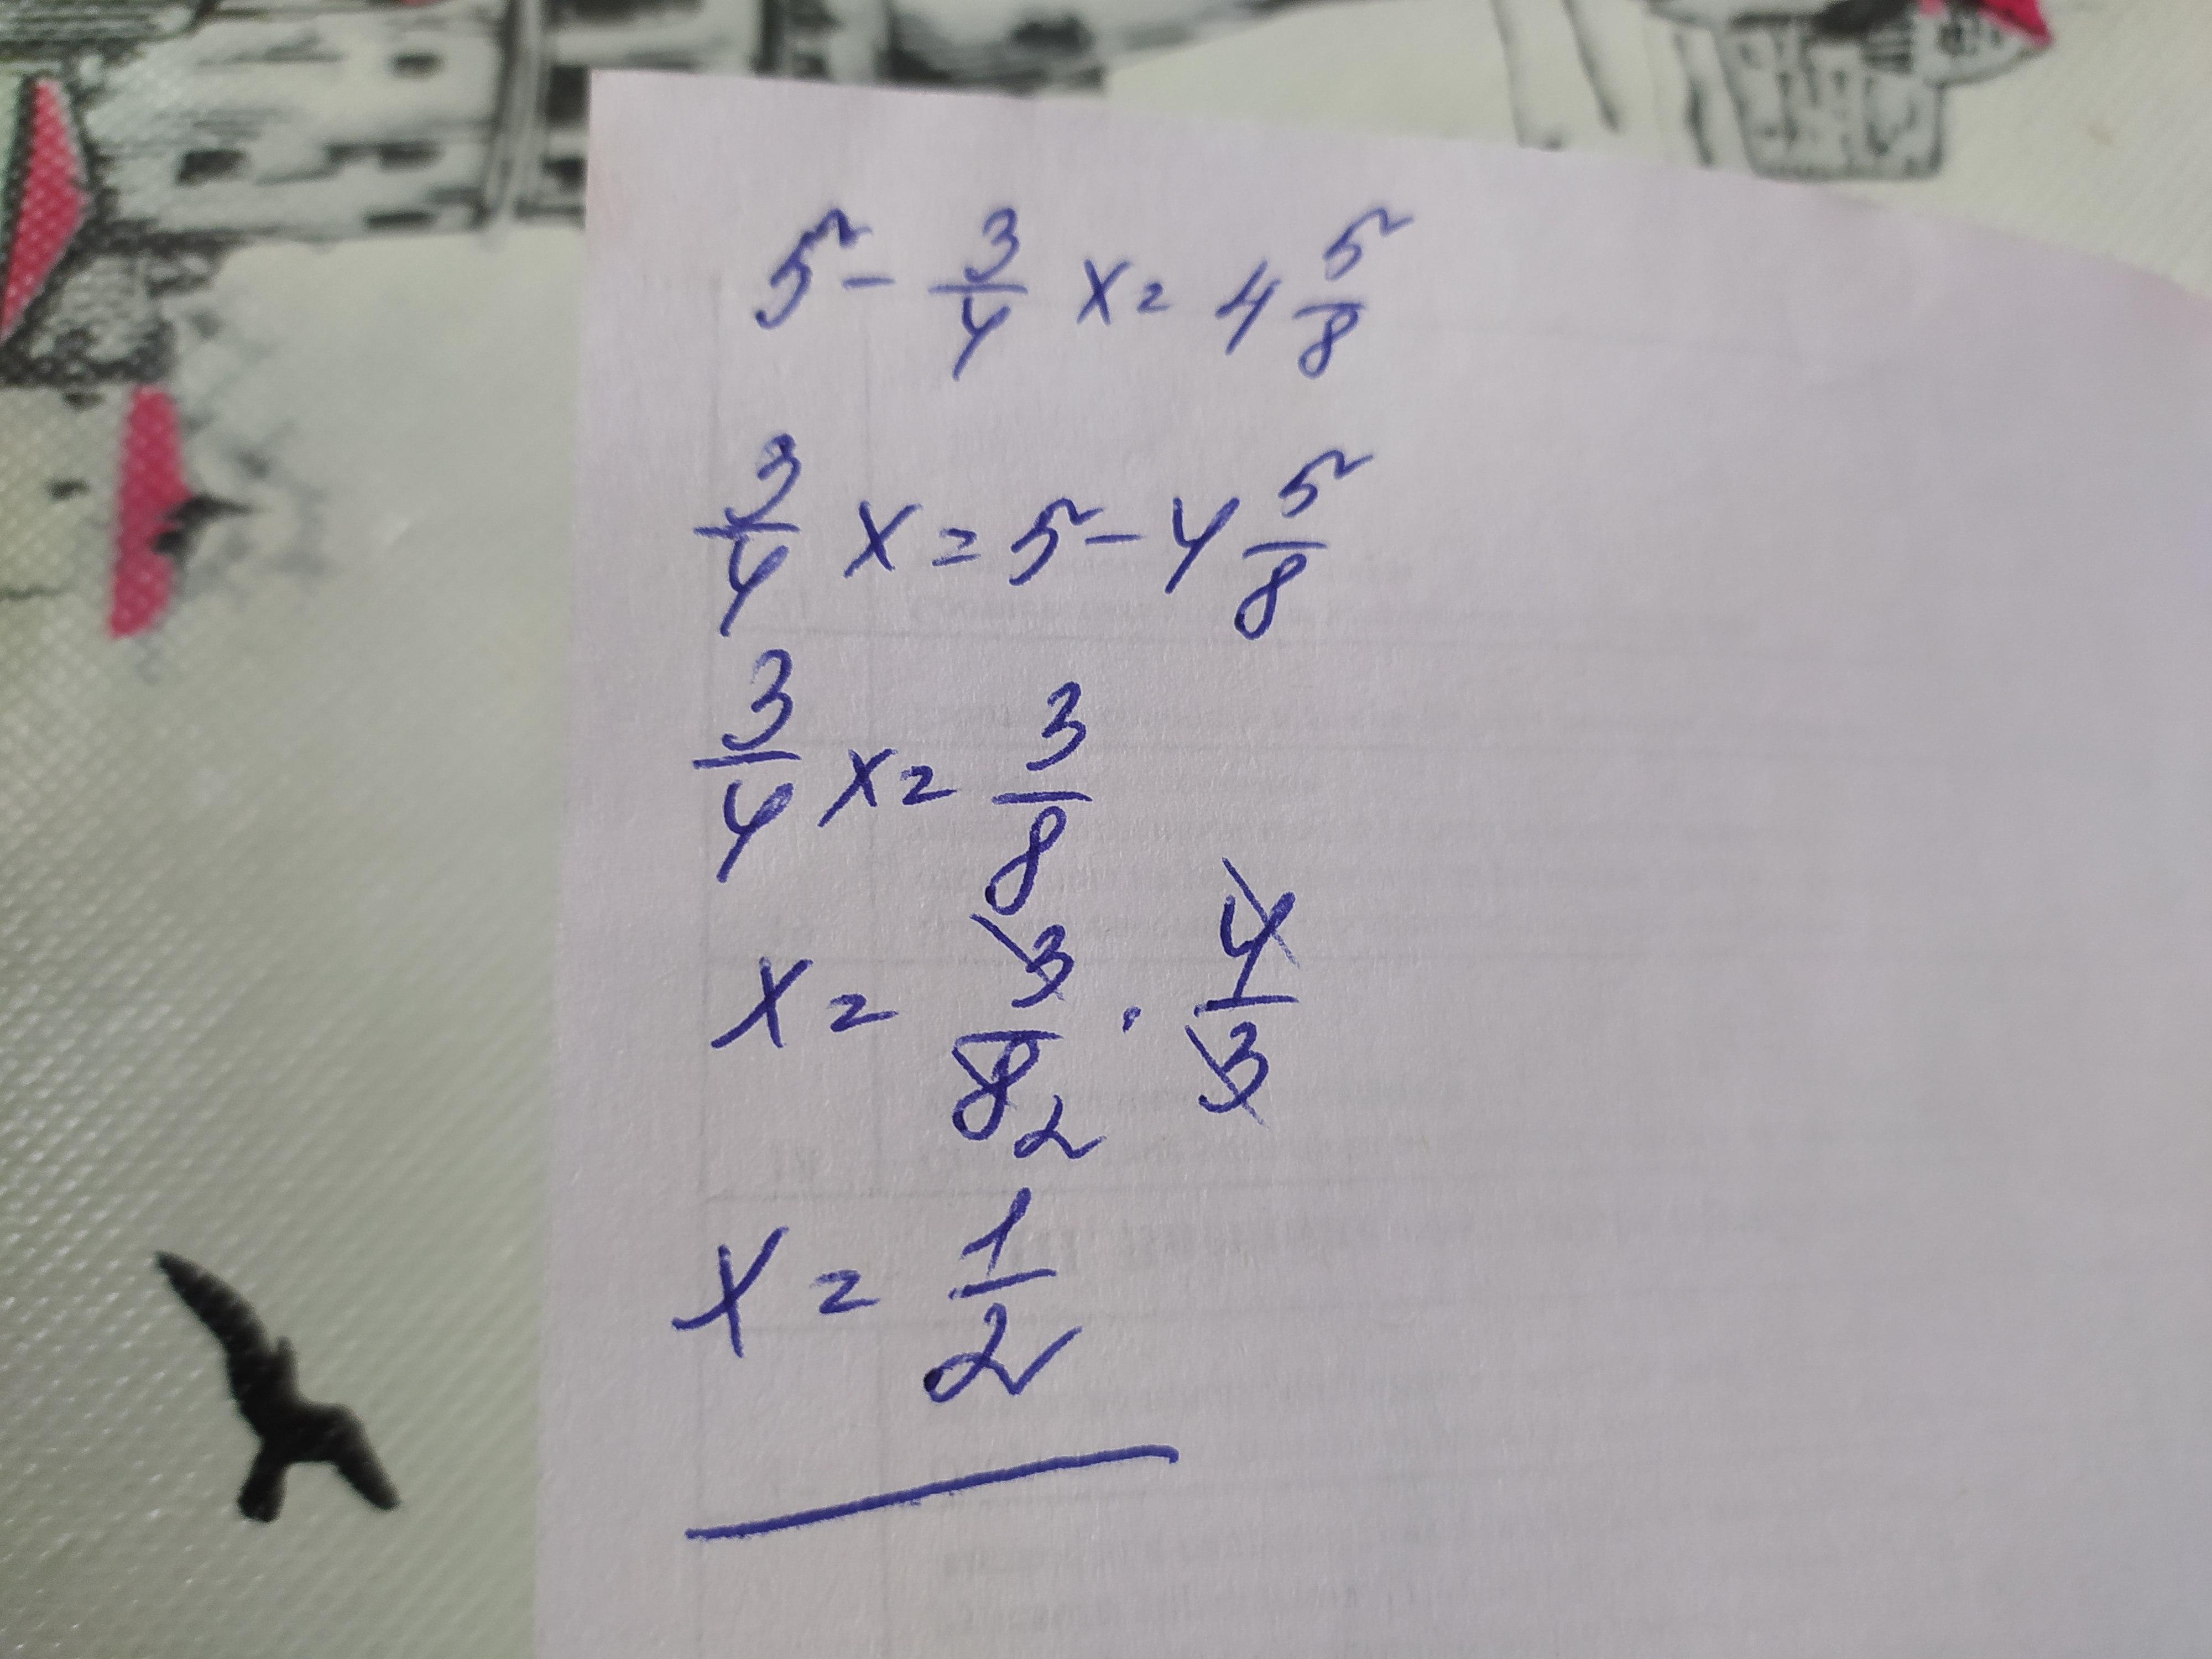 5 - 3/4 x = 4 5/8
3/4 x = 5 - 4 5/8
3/4 x = 3/8
x = 3/8 2 · 4/3
x = 1/2